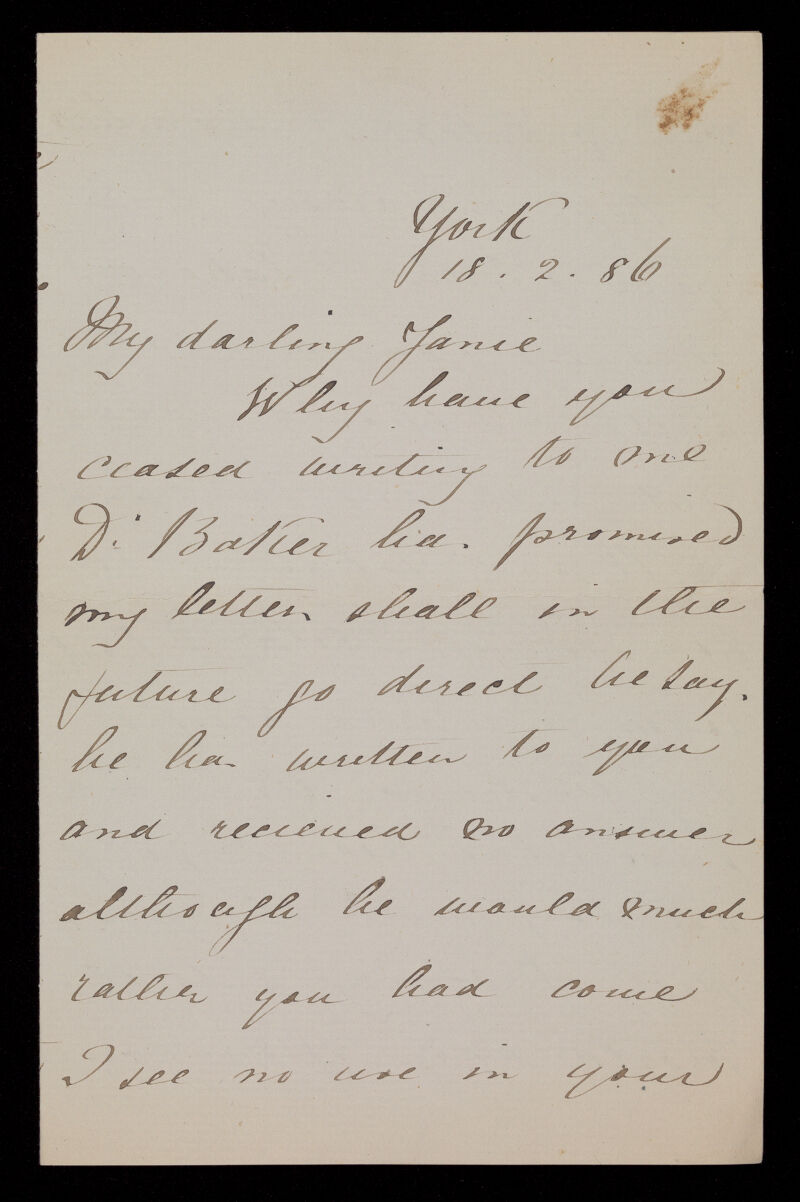 York
18. 2. 86
My darling Janie
Why have you
ceased writing to me
Dr Baker has promised
my letters shall in the
future go direct he says
he has written to you
and recieved no answer
although he would much
rather you had come
I see no use in your